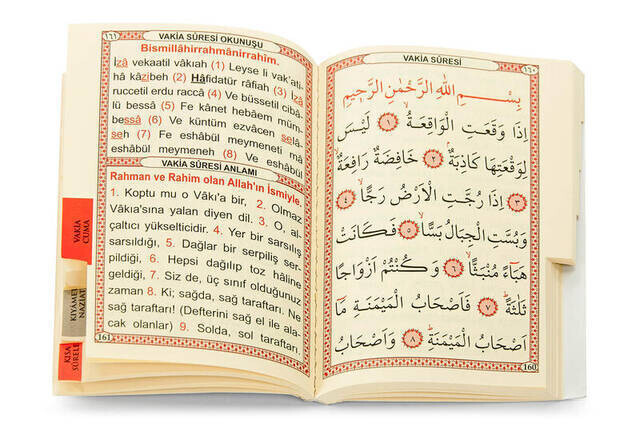 ١٦١ VAKİA SÛRESİ OKUNUŞU
Bismillâhirrahmânirrahim.
İzâ vekaatil vâkıah (1) Leyse li vak'ati-
hâ kâzibeh (2) Hâfidatür râfiah (3) İzâ
ruccetil erdu raccâ (4) Ve büssetil cibâ-
lü bessâ (5) Fe kânet hebâem müm-
bessâ (6) Ve küntüm ezvâcen selâ-
seh (7) Fe eshâbül meymeneti mâ
eshâbül meymeneh (8) Ve eshâbül
VAKİA SÛRESİ ANLAMI
Rahman ve Rahim olan Allah'ın İsmiyle.
1. Koptu mu o Vâkı'a bir, 2. Olmaz
Vâkıa'sına yalan diyen dil. 3. O, al-
çaltıcı yükselticidir. 4. Yer bir sarsılış
sarsıldığı, 5. Dağlar bir serpiliş ser-
pildiği, 6. Hepsi dağılıp toz hâline
geldiği, 7. Siz de, üç sınıf olduğunuz
zaman 8. Ki; sağda, sağ taraftarı. Ne
sağ taraftarı! (Defterini sağ el ile ala-
cak olanlar) 9. Solda, sol taraftarı.
161
VAKİA CUMA
KIYAMET NAZİAT
KISA SÛRELER
VAKİA SÛRESİ ١٦٠
بِسْمِ اللّٰهِ الرَّحْمٰنِ الرَّحِيمِ
اِذَا وَقَعَتِ الْوَاقِعَةُ ۙ ﴿١﴾ لَيْسَ
لِوَقْعَتِهَا كَاذِبَةٌ ﴿٢﴾ خَافِضَةٌ رَافِعَةٌ ۙ
﴿٣﴾ اِذَا رُجَّتِ الْاَرْضُ رَجًّا ۙ ﴿٤﴾
وَبُسَّتِ الْجِبَالُ بَسًّا ۙ ﴿٥﴾ فَكَانَتْ
هَبَٓاءً مُنْبَثًّا ۙ ﴿٦﴾ وَكُنْتُمْ اَزْوَاجًا
ثَلٰثَةً ۜ ﴿٧﴾ فَاَصْحَابُ الْمَيْمَنَةِ مَٓا
اَصْحَابُ الْمَيْمَنَةِ ۜ ﴿٨﴾ وَاَصْحَابُ
160